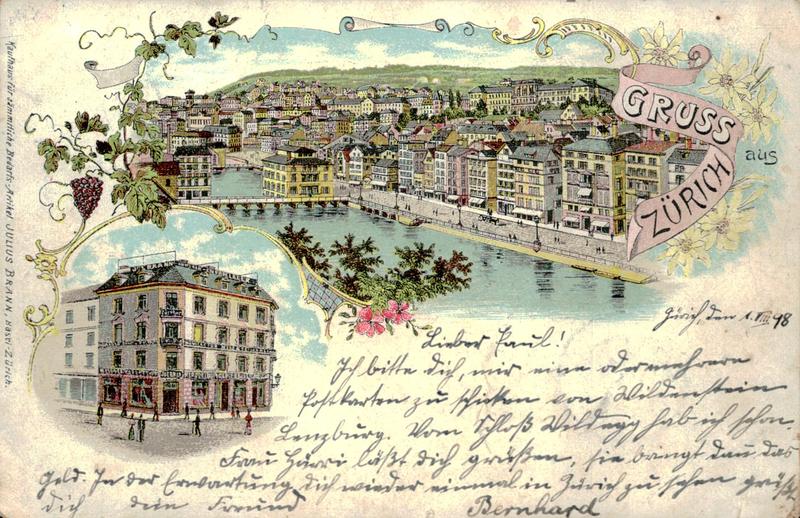 GRUSS
aus
ZÜRICH
Kaufhaus für sämmtliche Bedarfs-Artikel JULIUS BRANN, Basel-Zürich.
Zürich, den 1. VIII 98
Lieber Paul!
Ich bitte dich, mir eine oder mehrere
Postkarten zu schicken von Wildenstein
Lenzburg. Vom Schloß Wildegg hab ich schon.
Frau Hürri läßt dich grüßen, sie bringt dau das
Geld. In der Erwartung, dich wieder einmal in Zürich zu sehen grüßt
dich dein Freund Bernhard